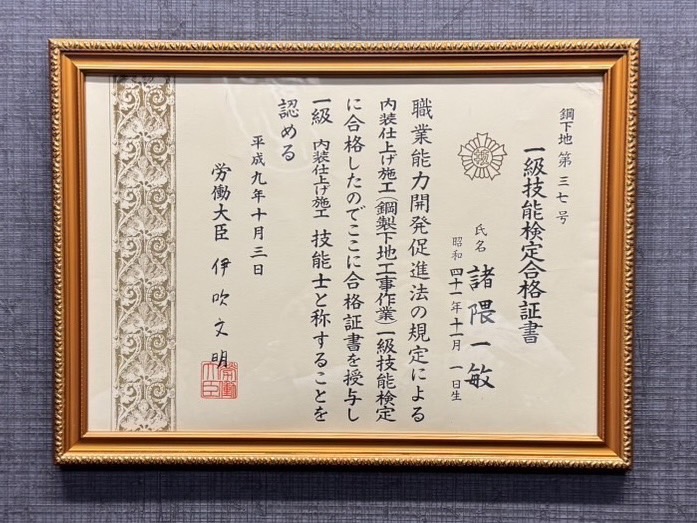 鋼下地 第 三七 号
一級技能検定合格証書
技能
氏名 諸隈一敏
昭和 四十一 年 十一 月 一 日生
職業能力開発促進法の規定による
内装仕上げ施工(鋼製下地工事作業)一級技能検定
に合格したのでここに合格証書を授与し
一級 内装仕上げ施工 技能士と称することを
認める
平成九年十月三日
労働大臣 伊吹文明
労働大臣